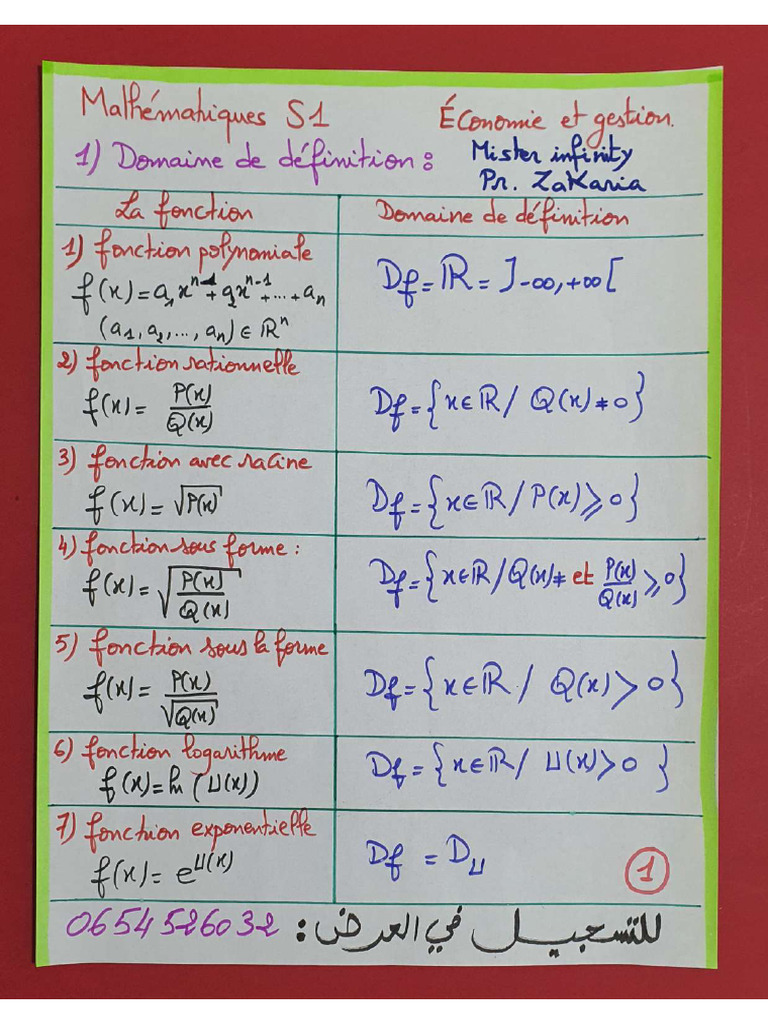 Mathématiques S1 Économie et gestion.
1) Domaine de définition : Mister infinity
Pr. Zakaria
La fonction Domaine de définition
1) fonction polynomiale
f(x) = a₁xⁿ⁻¹ + a₂xⁿ⁻¹ + ... + aₙ Df = ℝ = ]-∞, +∞[
(a₁, a₂, ..., aₙ) ∈ ℝⁿ
2) fonction rationnelle
f(x) = P(x)/Q(x) Df = {x ∈ ℝ / Q(x) ≠ 0}
3) fonction avec racine
f(x) = √P(x) Df = {x ∈ ℝ / P(x) ⩾ 0}
4) fonction sous forme :
f(x) = √(P(x)/Q(x)) Df = {x ∈ ℝ / Q(x) ≠ et P(x)/Q(x) ⩾ 0}
5) fonction sous la forme
f(x) = P(x)/√Q(x) Df = {x ∈ ℝ / Q(x) > 0}
6) fonction logarithme
f(x) = ln (U(x)) Df = {x ∈ ℝ / U(x) > 0 }
7) fonction exponentielle
f(x) = e^U(x) Df = D_U
1
للتسجيل في العرض : 0654526032